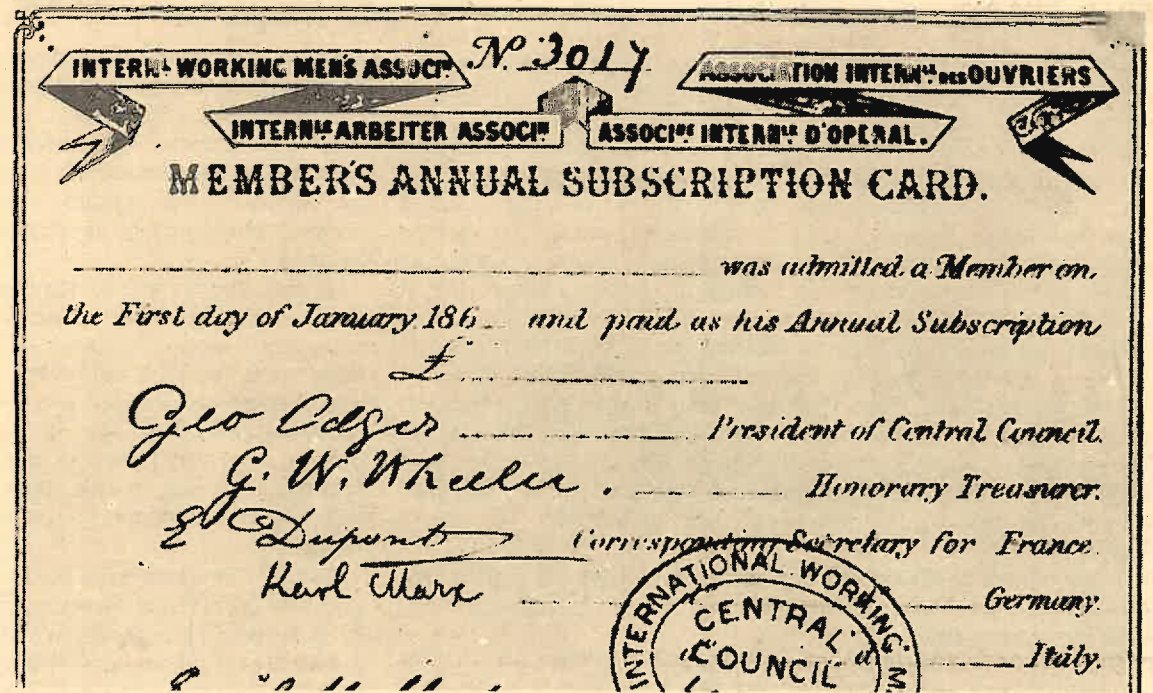 INTERN^L WORKING MEN'S ASSOCI^N.
N. 3017
ASSOCIATION INTERN^LE. DES OUVRIERS
INTERN^LE ARBEITER ASSOCI^N
ASSOCI^NE INTERN^LE. D'OPERAI.
MEMBER'S ANNUAL SUBSCRIPTION CARD.
was admitted a Member on
the First day of January 186 and paid as his Annual Subscription
£
Geo Odger President of Central Council.
G. W. Wheeler. Honorary Treasurer.
E Dupont Corresponding Secretary for France.
Karl Marx Germany.
Italy.
INTERNATIONAL WORKING M
CENTRAL
COUNCIL